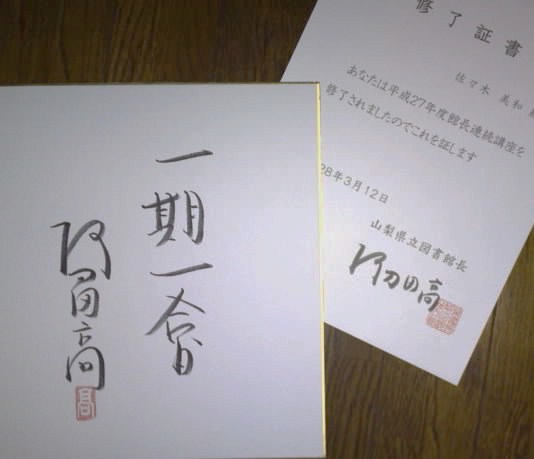 一期一會
阿刀田高
高
修了証書
佐々木 美和
あなたは平成27年度館長連続講座を
修了されましたのでこれを証します
28年3月12日
山梨県立図書館長
阿刀田高